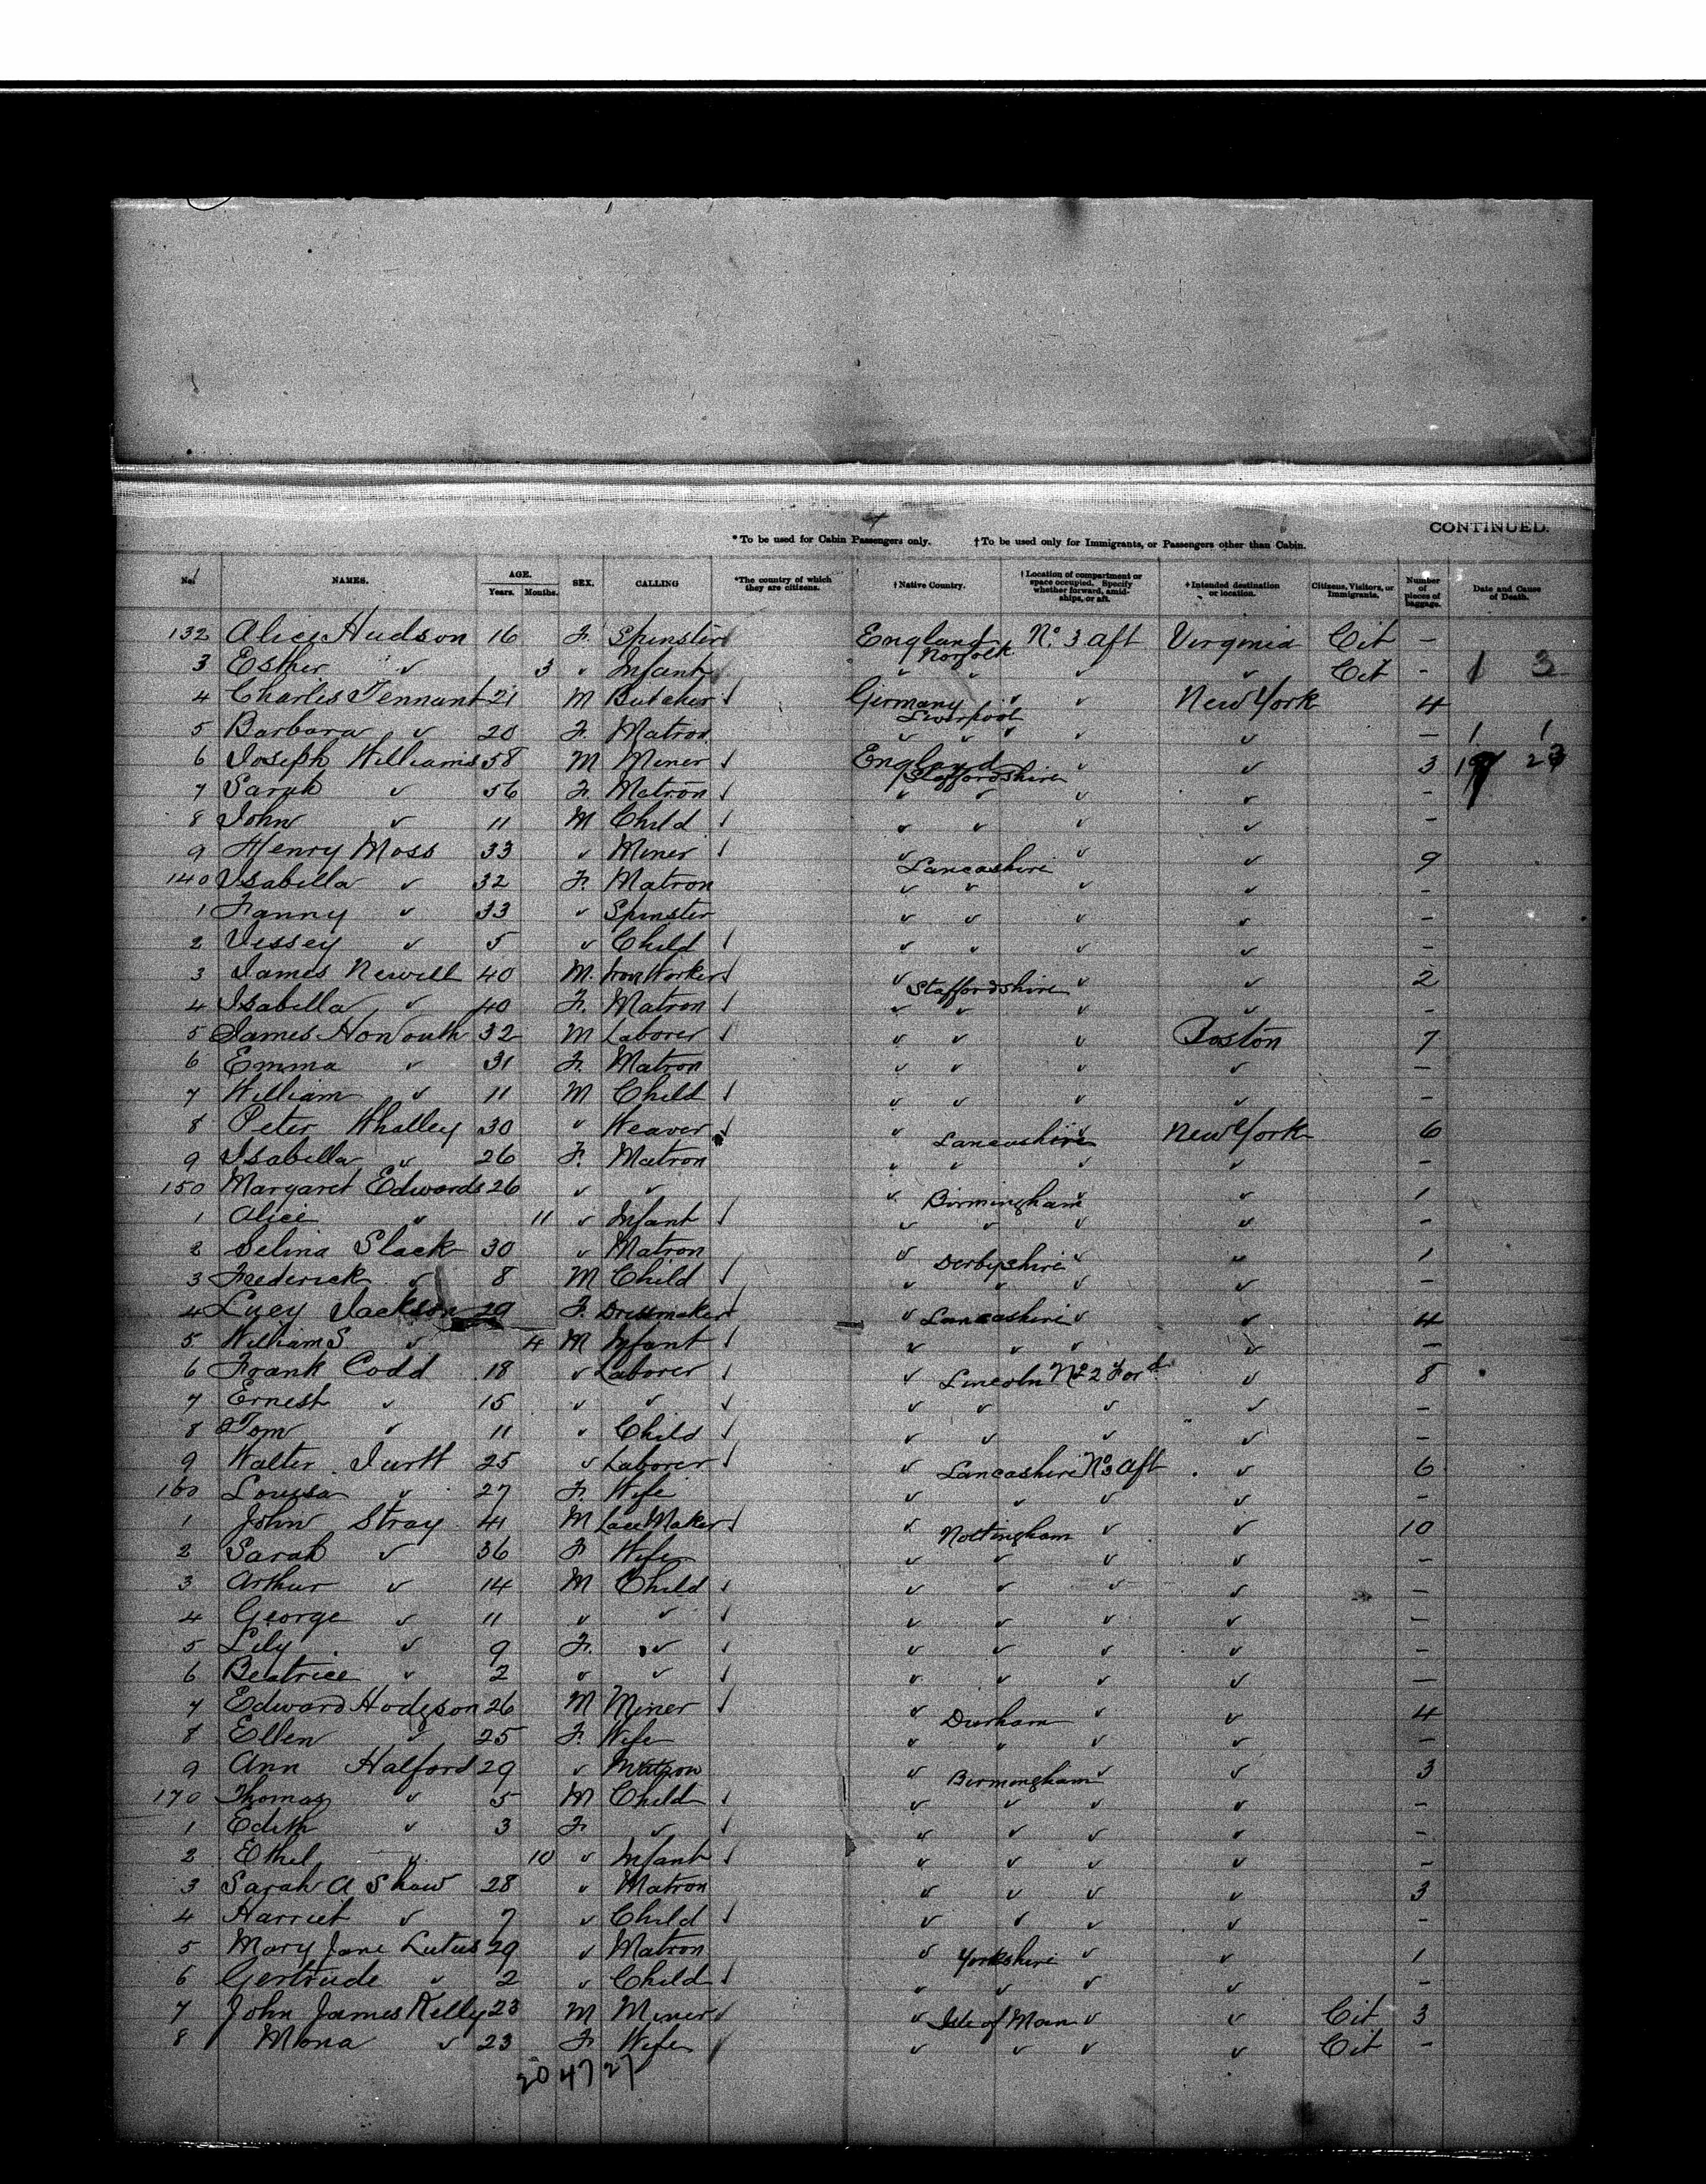 CONTINUED.
* To be used for Cabin Passengers only. † To be used only for Immigrants, or Passengers other than Cabin.
No. NAMES. AGE. Years. Months. SEX. CALLING *The country of which they are citizens. † Native Country. † Location of compartment or space occupied. Specify whether forward, amidships, or aft. † Intended destination or location. Citizens, Visitors, or Immigrants. Number of pieces of baggage. Date and Cause of Death.
132 Alice Hudson 16 F. Spinster England Norfolk No. 3 aft Virginia Cit —
3 Esther " 3 " Infant " " " " Cit - 1 3
4 Charles Tennant 21 M Butcher Germany Liverpool " " New York 4
5 Barbara " 20 F. Matron " " " " " — 1 1
6 Joseph Williams 58 M Miner England Staffordshire " " 3
7 Sarah " 56 F. Matron " " " " -
8 John " 11 M Child " " " -
9 Henry Moss 33 " Miner " Lancashire " " 9
140 Isabella " 32 F. Matron " " " " -
1 Fanny " 33 " Spinster " " " " -
2 Jessey " 5 " Child " " " " -
3 James Newill 40 M. Iron Worker " Staffordshire " " 2
4 Isabella " 40 F. Matron " " " -
5 James 32 M Laborer " " " Boston 7
6 Emma " 31 F. Matron " " " " —
7 William " 11 M Child " " " -
8 Peter Whalley 30 " Weaver " Lancashire " New York 6
9 Isabella " 26 F. Matron " " " " -
150 Margaret Edwards 26 " " " Birmingham " " 1
1 Alice " 11 " Infant " " " " -
2 Selina Slack 30 " Matron " Derbyshire " " 1
3 Frederick " 8 M Child " " " " -
4 Lucy Jackson 29 F. Dressmaker " Lancashire " " 4
5 William S " 4 M Infant " " " " —
6 Frank Codd 18 " Laborer " Lincoln No 2 Ford " 8
7 Ernest " 15 " " " " " " -
8 Tom " 11 " Child " " " " -
9 Walter 25 " Laborer " Lancashire No 3 aft " 6
160 Louisa " 27 F. Wife " " " " -
1 John Stray 41 M Lace Maker " Nottingham " " 10
2 Sarah " 36 F Wife " " " " -
3 Arthur " 14 M Child " " " " -
4 George " 11 " " " " " " —
5 Lily " 9 F. " " " " " -
6 Beatrice " 2 " " " " " " —
7 Edward Hodgson 26 M Miner " Durham " " 4
8 Ellen " 25 F. Wife " " " " -
9 Ann Halford 29 " Matron " Birmingham " " 3
170 Thomas " 5 M Child " " " " -
1 Edith " 3 F " " " " " -
2 Ethel " 10 " Infant " " " " -
3 Sarah A Shaw 28 " Matron " " " " 3
4 Harriet " 7 " Child " " " " -
5 Mary Jane Lutus 29 " Matron " Yorkshire " " 1
6 Gertrude " 2 " Child " " " " -
7 John James Kelly 23 M Miner " Isle of Man " " Cit 3
8 Mona " 23 F Wife " " " " Cit -
20 47 27